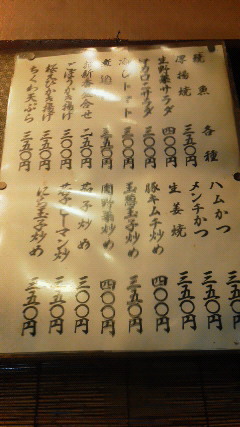 焼魚 各種
厚揚焼 三五〇円
生野菜サラダ 四〇〇円
オニオンサラダ 三〇〇円
冷しトマト 三〇〇円
お新香盛合せ 二五〇円
ごぼうかき揚げ 三〇〇円
桜えびかき揚げ 三五〇円
ちくわ天ぷら 三五〇円
ハムかつ 三五〇円
メンチかつ 三五〇円
生姜焼
豚キムチ炒め 三五〇円
玉葱玉子炒め 三五〇円
肉野菜炒め 四〇〇円
茄子炒め 三五〇円
茄子ピーマン炒め 三五〇円
にら玉子炒め 三五〇円